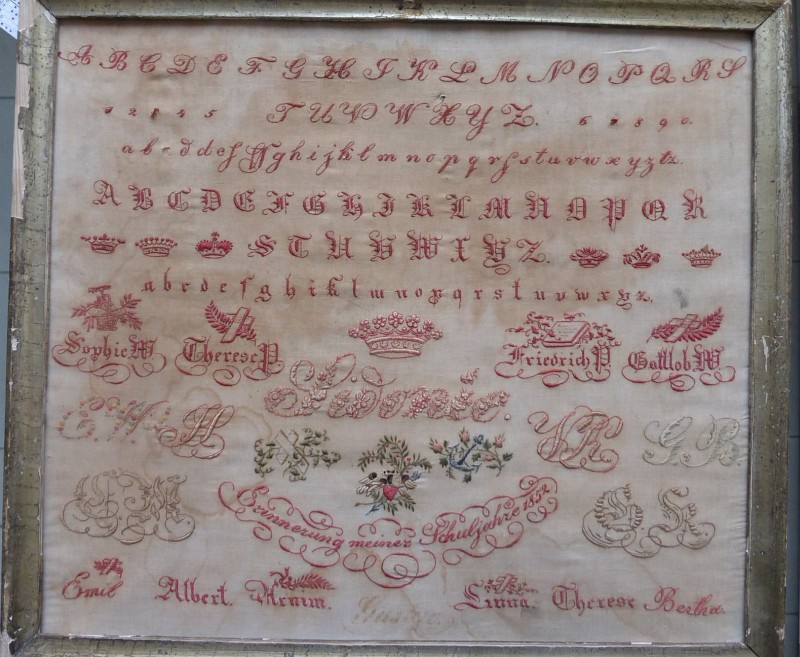 A B C D E F G H I K L M N O P Q R S
1 2 3 4 5 T U V W X Y Z. 6 7 8 9 0.
a b c d d e f g h i j k l m n o p q r s t u v w x y z tz.
A B C D E F G H I K L M N O P Q R
S T U V W X Y Z.
a b c d e f g h i k l m n o p q r s t u v w x y z.
Sophie W. Therese P. Friedrich P. Gottlob W.
Sidonie.
G. B.
Erinnerung meiner Schuljahre 1852
Emil Albert. Armim. Linna. Therese Bertha.
Gustav.